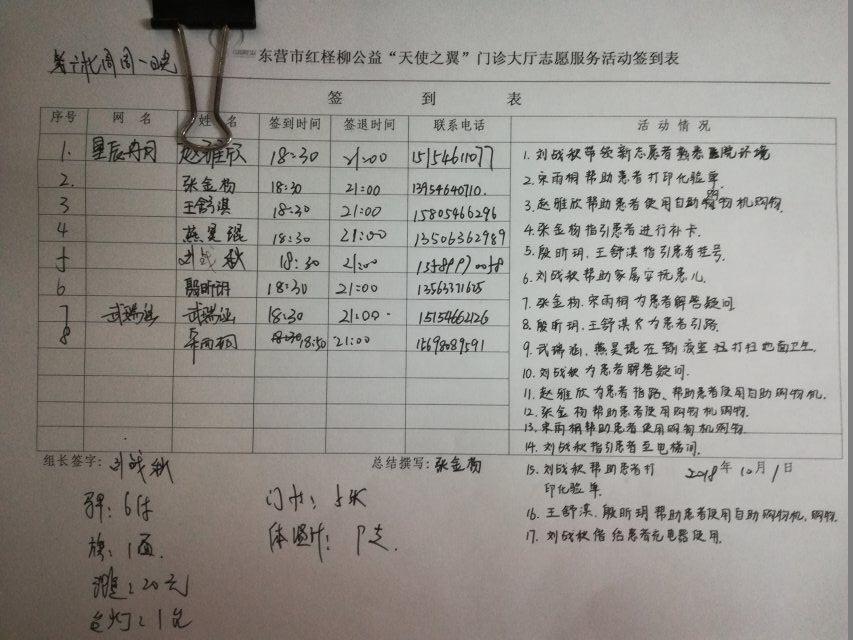 东营市红柽柳公益“天使之翼”门诊大厅志愿服务活动签到表
签 到 表
序号 网 名 姓 名 签到时间 签退时间 联系电话 活动情况
1. 星辰丹同 赵雅欣 18:30 21:00 15154611077
2. 张金枸 18:30 21:00 13954640710.
3 王舒淇 18:30 21:00 15805466296
4 燕昊琨 18:30 21:00 13506362989
5 刘战秋 18:30 21:00
6 殷昕玥 18:30 21:00 13563371625
7 武瑞涵 武瑞涵 18:30 21:00 15154662126
8 宋雨桐 18:30 18:50 21:00 15698089591
1. 刘战秋带领新志愿者熟悉医院环境
2. 宋雨桐帮助患者打印化验单.
3. 赵雅欣帮助患者使用自助购物机购物.
4. 张金枸指引患者进行补卡.
5. 殷昕玥、王舒淇指引患者挂号.
6. 刘战秋帮助家属安抚患儿.
7. 张金枸、宋雨桐为患者解答疑问
8. 殷昕玥、王舒淇为患者引路.
9. 武瑞涵、燕昊琨在输液室扫打扫地面卫生.
10. 刘战秋为患者解答疑问.
11. 赵雅欣为患者指路、帮助患者使用自助购物机.
12. 张金枸帮助患者使用购物机购物.
13. 宋雨桐帮助患者使用购物机购物.
14. 刘战秋指引患者至电梯间.
15. 刘战秋帮助患者打
印化验单.
16. 王舒淇、殷昕玥帮助患者使用自助购物机购物.
17. 刘战秋借给患者充电器使用.
组长签字: 刘战秋
总结撰写: 张金枸
2018年10月1日
旗: 1面
体温计: